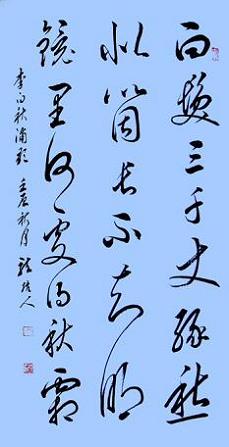 白髮三千丈緣愁
似箇長不知明
鏡里何處得秋霜
李白秋浦歌 壬辰秋月